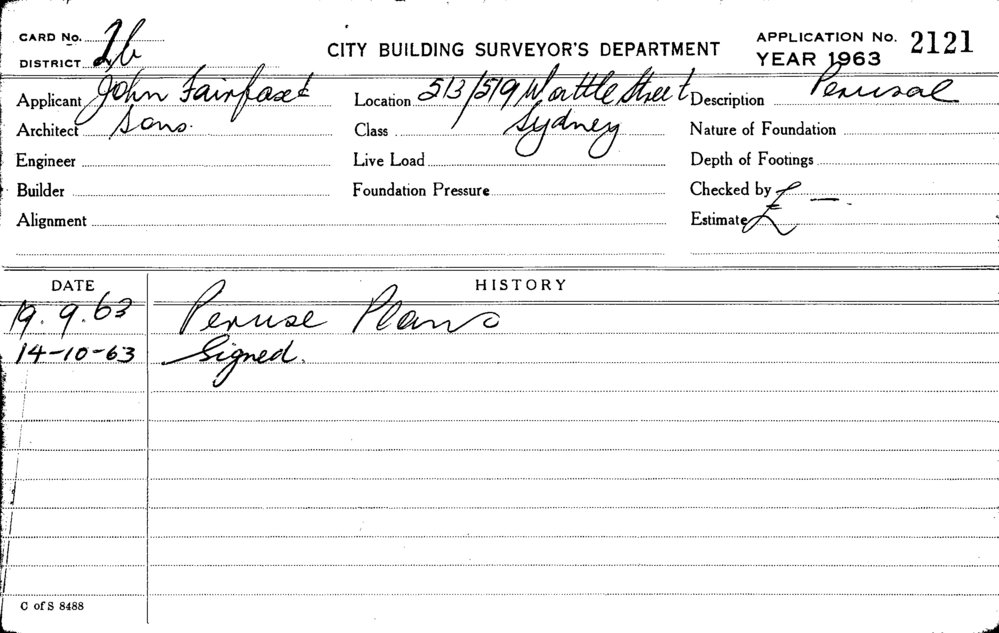 CARD No. 2b CITY BUILDING SURVEYOR'S DEPARTMENT APPLICATION No. 2121
DISTRICT YEAR 1963
Applicant John Fairfax & Location 513/519 Wattle Street Description Perusal
Architect Sons. Class Sydney Nature of Foundation
Engineer Live Load Depth of Footings
Builder Foundation Pressure Checked by
Alignment Estimate £ —.
DATE HISTORY
19.9.63 Peruse Plans
14-10-63 Signed.
C of S 8488